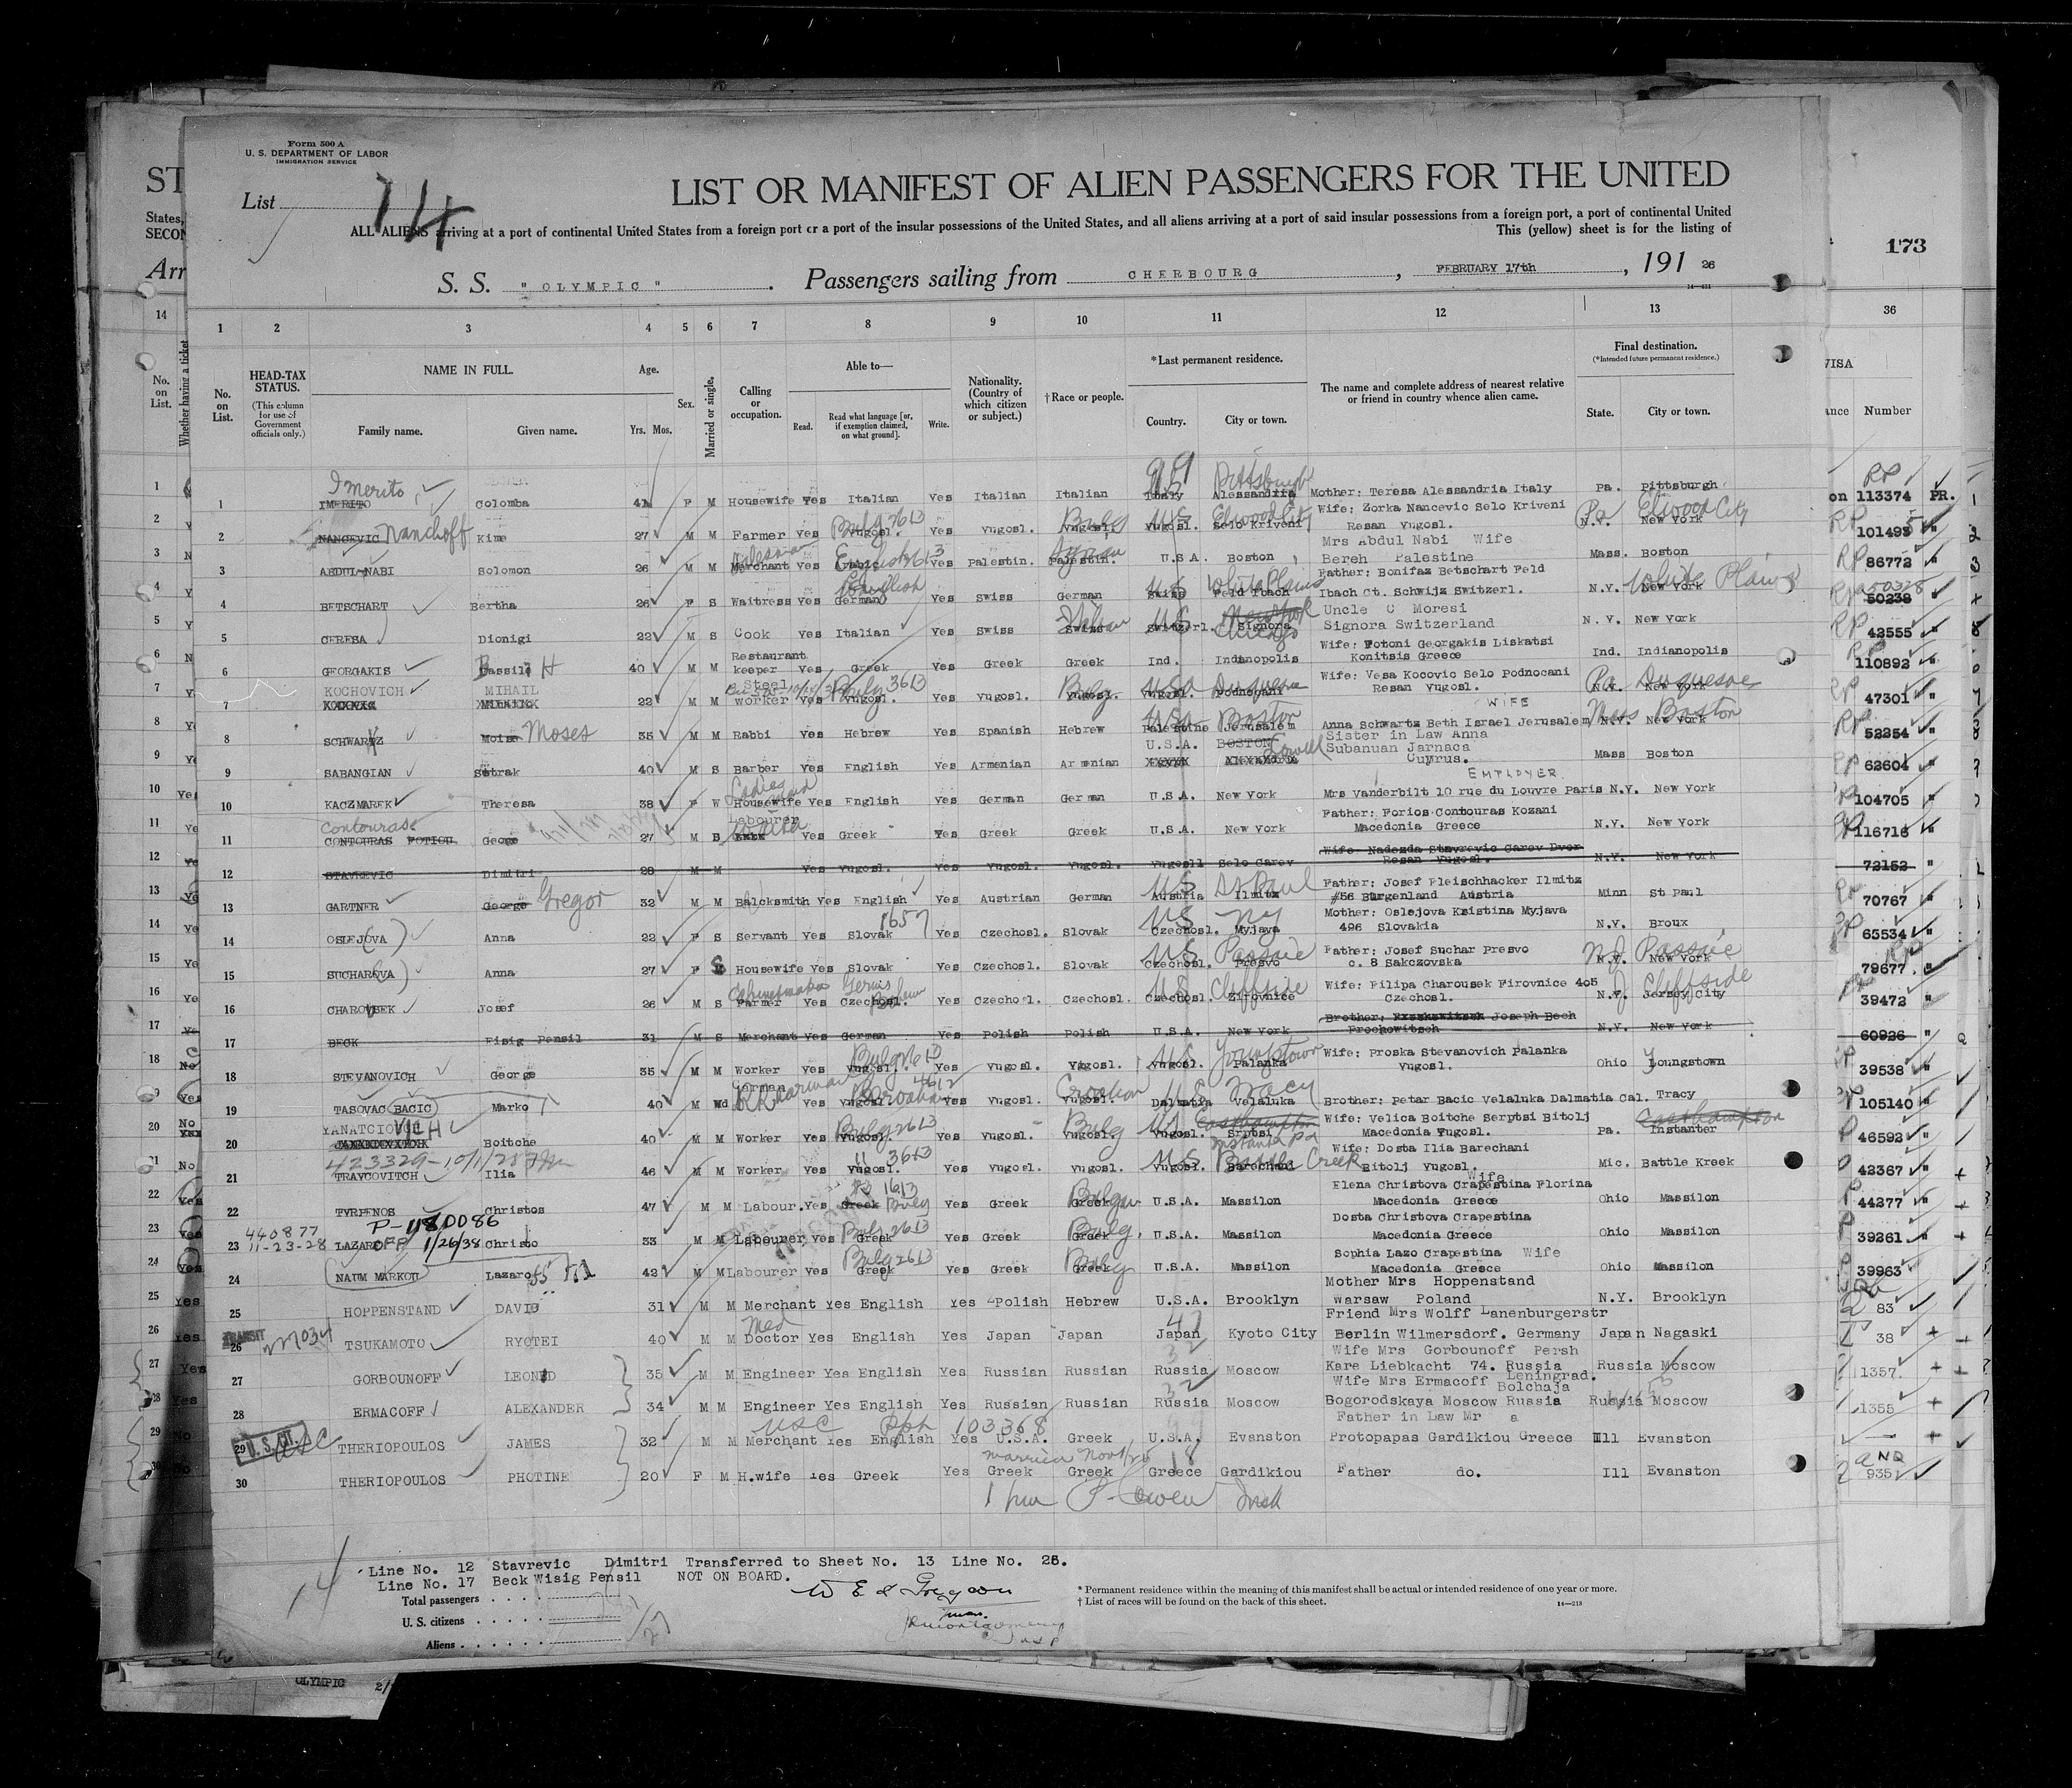 Form 500 A
U. S. DEPARTMENT OF LABOR
IMMIGRATION SERVICE
List 14
LIST OR MANIFEST OF ALIEN PASSENGERS FOR THE UNITED
ALL ALIENS arriving at a port of continental United States from a foreign port or a port of the insular possessions of the United States, and all aliens arriving at a port of said insular possessions from a foreign port, a port of continental United
This (yellow) sheet is for the listing of
S. S. " OLYMPIC " . Passengers sailing from CHERBOURG , FEBRUARY 17th , 191 26
173
ST
States,
SECON
Arr
1 2 3 4 5 6 7 8 9 10 11 12 13
14 36
No. on List.
HEAD-TAX STATUS. (This column for use of Government officials only.)
NAME IN FULL. Family name. Given name.
Age. Yrs. Mos.
Sex.
Married or single.
Calling or occupation.
Able to— Read. Read what language [or, if exemption claimed, on what ground]. Write.
Nationality. (Country of which citizen or subject.)
† Race or people.
*Last permanent residence. Country. City or town.
The name and complete address of nearest relative or friend in country whence alien came.
Final destination. (*Intended future permanent residence.) State. City or town.
VISA
ance Number
No. on List.
Whether having a ticket
Imerito US Pittsburgh
1 IMERITO Colomba 41 F M Housewife Yes Italian Yes Italian Italian Italy Alessandria Mother: Teresa Alessandria Italy Pa. Pittsburgh 113374 PR.
2 NANCEVIC Nanchoff Kime 27 M M Farmer Yes Yugosl. Bulg 2613 Yes Yugosl. Yugosl. Bulg Yugosl. Selo Kriveni US Elwood City Wife: Zorka Nancevic Selo Kriveni Resan Yugosl. N.Y. New York Pa Elwood City 101493 "
3 ABDUL-NABI Solomon 26 M M Merchant Salesman Yes Arabic English Yes Palestin. Palestin. Syrian U.S.A. Boston Mrs Abdul Nabi Wife Bereh Palestine Mass. Boston 86772 "
4 BETSCHART Bertha 26 F S Waitress Yes German English Yes Swiss German Swiss Feld Ibach US White Plains Father: Bonifaz Betschart Feld Ibach Ct. Schwijz Switzerl. N.Y. New York White Plains 50238 50328
5 CERESA Dionigi 22 M S Cook Yes Italian Yes Swiss Swiss Italian Switzerl. Signora US New York Chicago Uncle C Moresi Signora Switzerland N.Y. New York 42555 "
6 GEORGAKIS Bassili H 40 M M Restaurant keeper Yes Greek Yes Greek Greek Ind. Indianopolis Wife: Fotoni Georgakis Liskatsi Konitsis Greece Ind. Indianopolis 110892 "
7 KOCHOVICH MIHAIL 22 M M Steel worker Yes Yugosl. Bulg 3613 Yes Yugosl. Yugosl. Bulg Yugosl. Podnocani USA Duquesne Wife: Vesa Kocovic Selo Podnocani Resan Yugosl. N.Y. New York Pa Duquesne 47301 "
8 SCHWARTZ Moise Moses 35 M M Rabbi Yes Hebrew Yes Spanish Hebrew Palestine Jerusalem USA Boston WIFE Anna Schwartz Beth Israel Jerusalem N.Y. New York Mass Boston 52254 "
9 SABANGIAN Setrak 40 M S Barber Yes English Yes Armenian Armenian U.S.A. BOSTON Lowell Sister in Law Anna Subanuan Jarnaca Cuyrus. Mass Boston 62604 "
10 KACZMAREK Theresa 38 F W Housewife Ladies Maid Yes English Yes German German U.S.A. New York EMPLOYER Mrs Vanderbilt 10 rue du Louvre Paris N.Y. New York 104705 "
11 CONTOURAS FOTIOU Contouras George 27 M S Labourer Yes Greek Yes Greek Greek U.S.A. New York Father: Forios Contouras Kozani Macedonia Greece N.Y. New York 116716 "
12 STAVREVIC Dimitri 28 M M Yes Yugosl. Yes Yugosl. Yugosl. Yugosl1 Selo Carev Wife: Nadezda Stavrevic Carev Dvor Resan Yugosl. N.Y. New York 72152 "
13 GARTNER George Gregor 32 M M Balcksmith Yes English Yes Austrian German Austria Ilmitz US St Paul Father: Josef Fleischhacker Ilmitz #56 Burgenland Austria Minn St Paul 70767 "
14 OSLEJOVA Anna 22 F S Servant Yes Slovak 1657 Yes Czechosl. Slovak Czechosl. Myjava US NY Mother: Oslejova Kristina Myjava 496 Slovakia N.Y. Broux 65534 "
15 SUCHAROVA Anna 27 F S Housewife Yes Slovak Yes Czechosl. Slovak Czechosl. Presvo US Passaic Father: Josef Suchar Presvo c. 8 Sakczovska N.Y. New York NJ Passaic 79677
16 CHAROUSEK Josef 26 M S Farmer Cabinetmaker Yes Czechosl. Yes Czechosl. Czechosl. Czechosl. Zirovnice US Cliffside Wife: Filipa Charousek Firovnice 405 Czechosl. N.Y. Jersey City J Cliffside 39472 "
17 BECK Fisig Pensil 31 M S Merchant Yes German Yes Polish Polish U.S.A. New York Brother: Joseph Bech Prochowitsch N.Y. New York 60926 "
18 STEVANOVICH George 35 M M Worker Yes Yugosl. Bulg 2613 Yes Yugosl. Yugosl. Yugosl. Palanka US Youngstown Wife: Proska Stevanovich Palanka Yugosl. Ohio Youngstown 39538 "
19 TASOVAC BACIC Marko 40 M Wd RR Carman Yes Yugosl Croatian 4612 Yes Yugosl. Yugosl. Croatian Dalmatia Velaluka US Tracy Brother: Petar Bacic Velaluka Dalmatia Cal. Tracy 105140 "
20 YANATCIOVICH Boitche 40 M M Worker Yes Yugosl. Bulg 2613 Yes Yugosl. Yugosl. Bulg Yugosl. Srptsi US Easthampton Instanter Pa Wife: Velica Boitche Serptsi Bitolj Macedonia Yugosl. Pa. Instanter Easthampton 46592 "
423329-10/11/28
21 TRAVCOVITCH Ilia 46 M M Worker Yes Yugosl. " 3613 Yes Yugosl. Yugosl. Yugosl. Barechani US Battle Creek Wife: Dosta Ilia Barechani Bitolj Yugosl. Mic. Battle Kreek 42367 "
22 TYRPENOS Christos 47 M M Labour. Yes Greek Bulg 1613 Yes Greek Greek Bulgar U.S.A. Massilon Wife Elena Christova Crapestina Florina Macedonia Greece Ohio Massilon 44277 "
440877 P-1180086
23 11-23-28 LAZAROFF 1/26/38 Christo 33 M M Labourer Yes Greek Bulg 2613 Yes Greek Greek Bulg. U.S.A. Massilon Dosta Christova Crapestina Macedonia Greece Ohio Massilon 39261 "
24 NAUM MARKOU Lazaro 42 M M Labourer Yes Greek Bulg 2613 Yes Greek Greek Bulg U.S.A. Massilon Sophia Lazo Crapestina Wife Macedonia Greece Ohio Massilon 39963 "
25 HOPPENSTAND DAVID 31 M M Merchant Yes English Yes Polish Hebrew U.S.A. Brooklyn Mother Mrs Hoppenstand Warsaw Poland N.Y. Brooklyn 83
26 TRANSIT TSUKAMOTO RYOTEI 40 M M Med Doctor Yes English Yes Japan Japan Japan Kyoto City Friend Mrs Wolff Lanenburgerstr Berlin Wilmersdorf. Germany Japan Nagaski 38
27 GORBOUNOFF LEONID 35 M M Engineer Yes English Yes Russian Russian Russia Moscow Wife Mrs Gorbounoff Persh Kare Liebkacht 74. Russia Leningrad. Russia Moscow 1357
28 ERMACOFF ALEXANDER 34 M M Engineer Yes English Yes Russian Russian Russia Moscow Wife Mrs Ermacoff Bolchaja Bogorodskaya Moscow Russia Russia Moscow 1355
USC Ppt 103368
29 U.S. CIT. USC THERIOPOULOS JAMES 32 M M Merchant Yes English Yes U.S.A. Greek U.S.A. Evanston Father in Law Mr a Protopapas Gardikiou Greece Ill Evanston
30 THERIOPOULOS PHOTINE 20 F M H.wife Yes Greek Yes Greek Greek Greece Gardikiou Father do. Ill Evanston 935
Line No. 12 Stavrevic Dimitri Transferred to Sheet No. 13 Line No. 26.
Line No. 17 Beck Wisig Pensil NOT ON BOARD.
14
Total passengers
U. S. citizens
Aliens
* Permanent residence within the meaning of this manifest shall be actual or intended residence of one year or more.
† List of races will be found on the back of this sheet.
14—213
OLYMPIC 2/